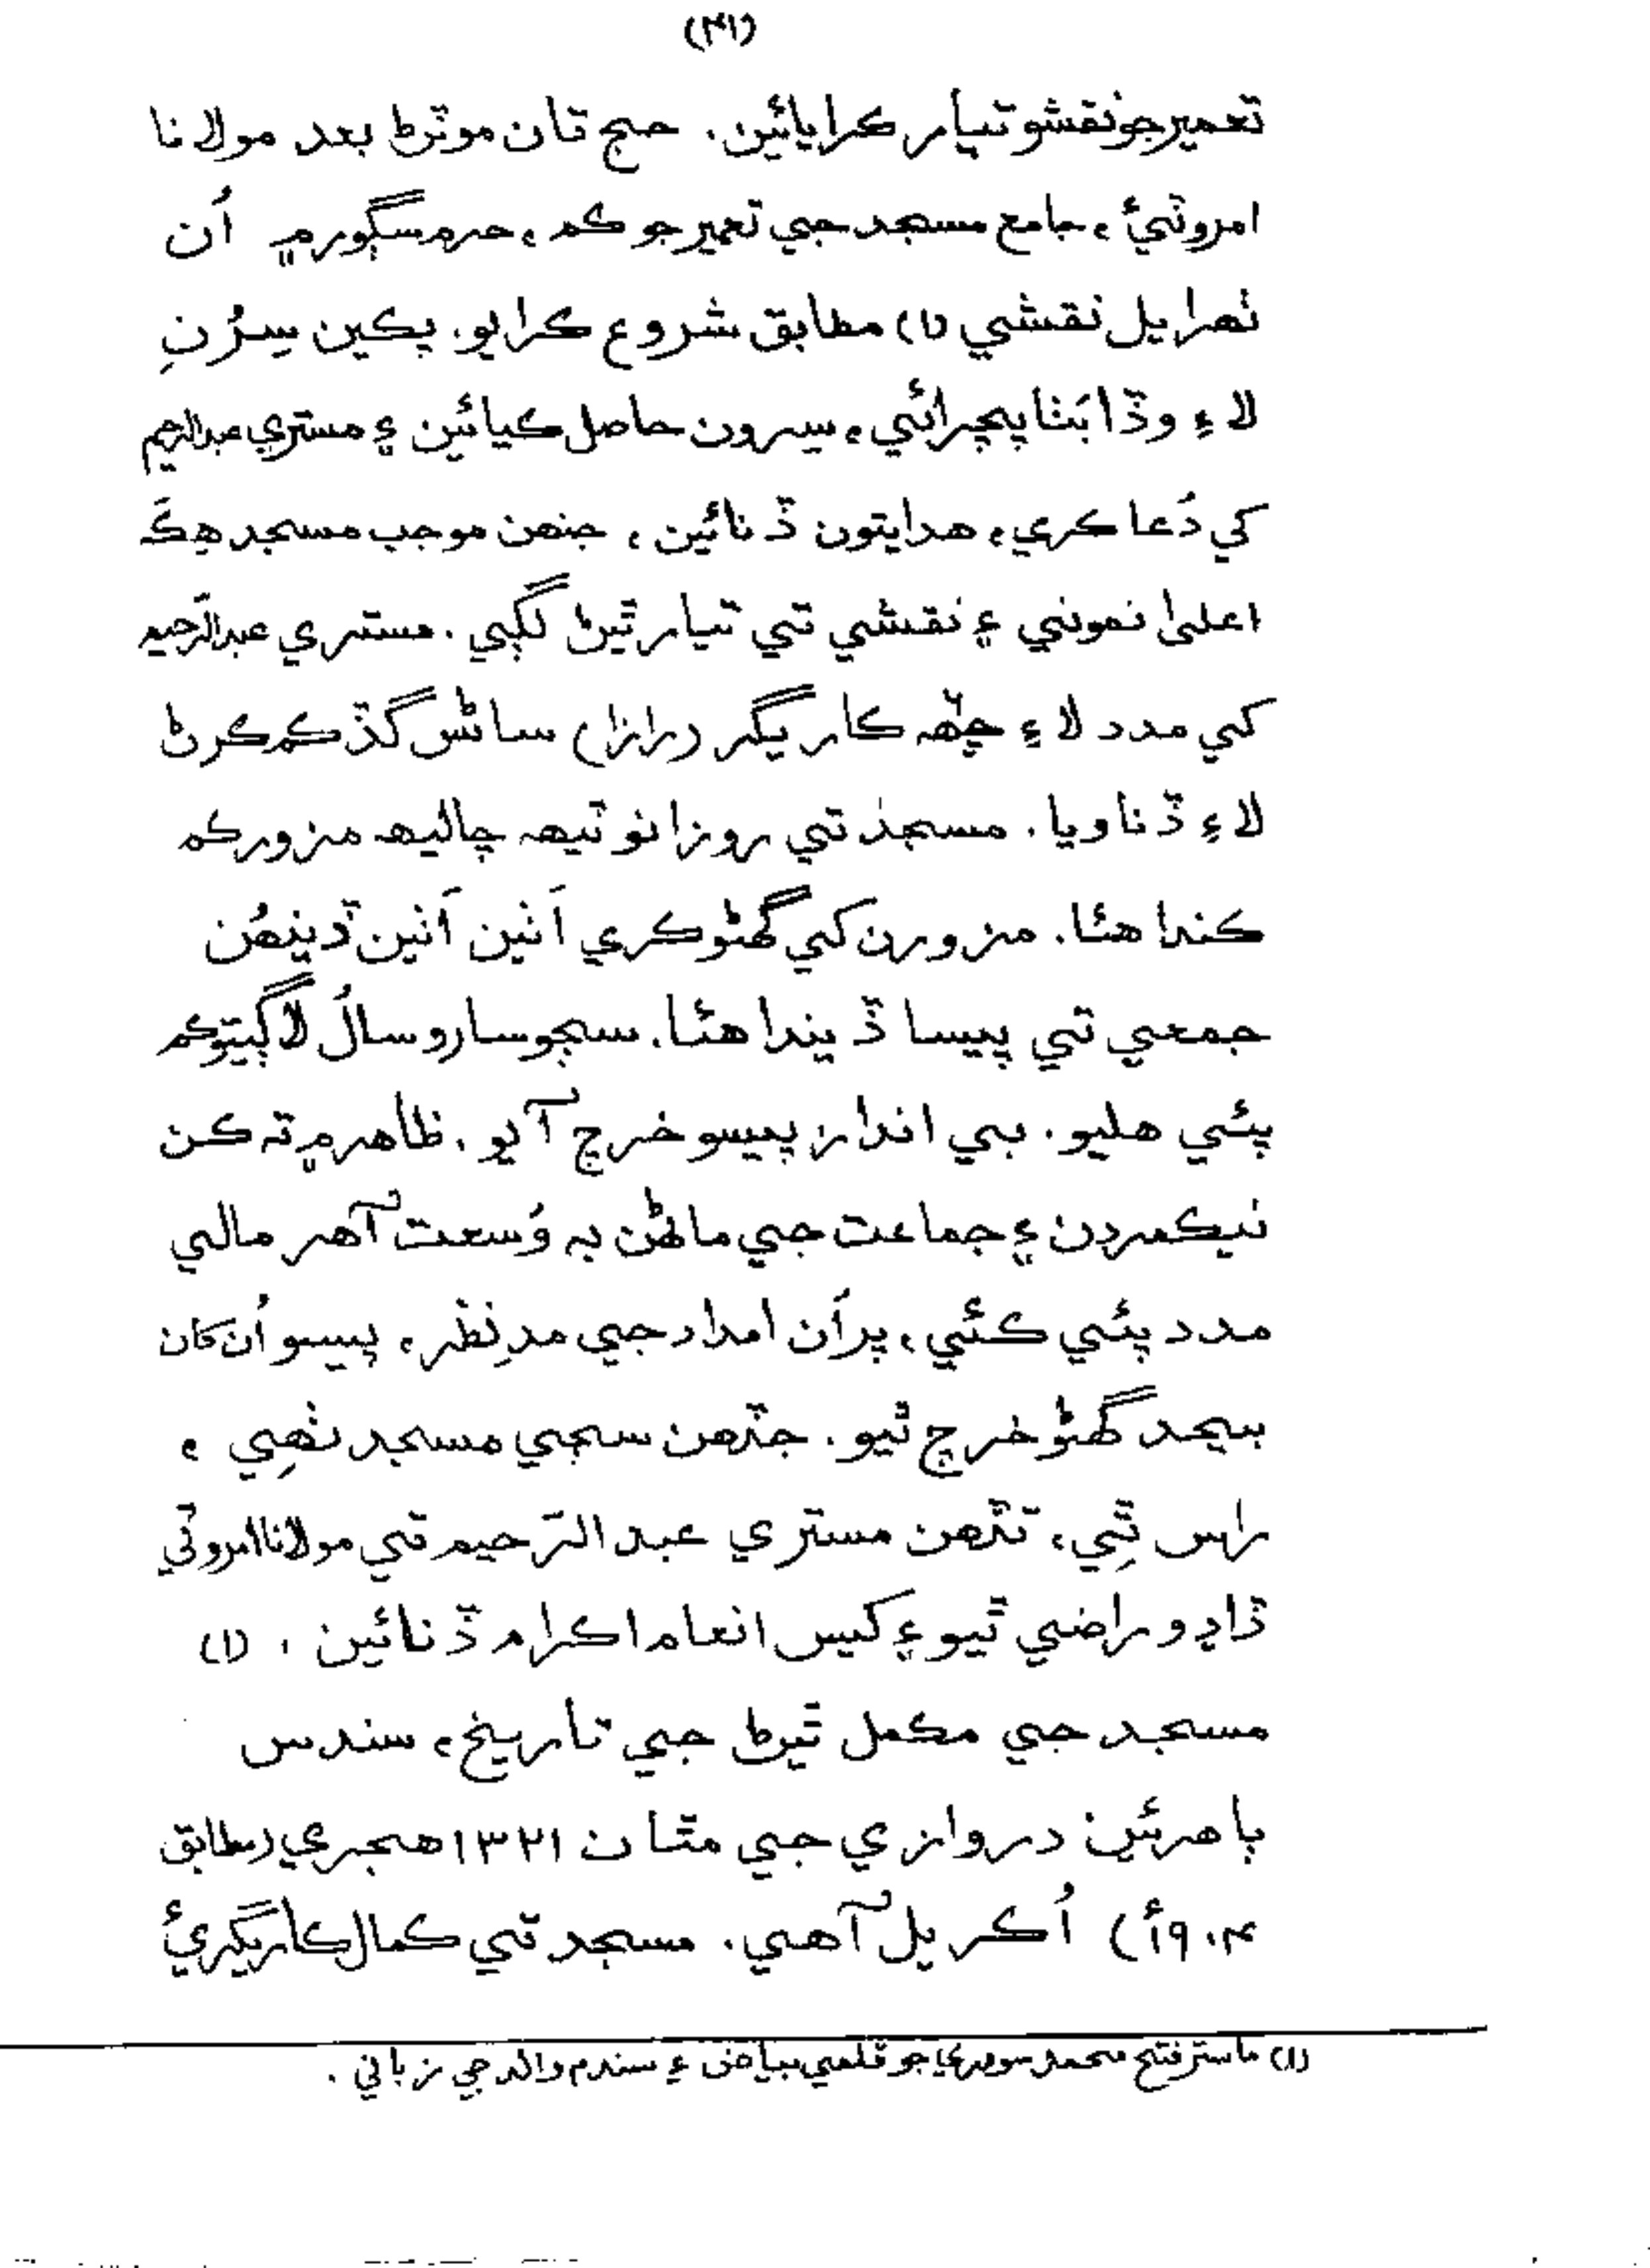 (۴۱)
تعمير جو نقشو تيار ڪرايائين. حج تان موٽڻ بعد مولانا
امروٽيءَ، جامع مسجد جي تعمير جو ڪم، حرمسڳور ۾ اُن
ٺهرايل نقشي (۱) مطابق شروع ڪرايو. پڪين سِرُنِ
لاءِ وڏا بَٺا پچرائي، سرون حاصل ڪيائين ۽ مستري عبدالرحيم
کي دُعا ڪري، هدايتون ڏنائين، جنهن موجب مسجد هِڪَ
اعليٰ نموني ۽ نقشي تي تيار ٿيڻ لڳي. مستري عبدالرَحيم
کي مدد لاءِ ڇهه ڪاريگر (رازا) ساڻس گڏ ڪم ڪرڻ
لاءِ ڏنا ويا. مسجد تي روزانو ٽيهه چاليهه مزور ڪم
ڪندا هئا. مزورن کي گهڻو ڪري اَٺين اَٺين ڏينهُن
جمعي تي پيسا ڏيندا هئا. سڄو سارو سالُ لاڳيتو ڪم
پئي هليو. بي انداز پيسو خرچ آيو. ظاهر ۾ ته ڪن
نيڪمردن ۽ جماعت جي ماڻهن به وُسعت آهر مالي
مدد پئي ڪئي، پر اُن امداد جي مدِ نظر، پيسو اُن کان
بيحد گهڻو خرچ ٿيو. جڏهن سڄي مسجد ٺهِي،
راس ٿِي، تڏهن مستري عبدالرّحيم تي مولانا امروٽي
ڏاڍو راضي ٿيو ۽ کيس انعام اڪرام ڏنائين. (۱)
مسجد جي مڪمل ٿيڻ جي تاريخ، سندس
ٻاهرئين دروازي جي مٿان ۱۳۲۱ هجري (مطابق
۱۹۰۴ع) اُڪريل آهي. مسجد تي ڪمال ڪاريگريءَ
(۱) ماستر فتح محمد سومري جو قلمي بياض ۽ سندم والد جي زباني.